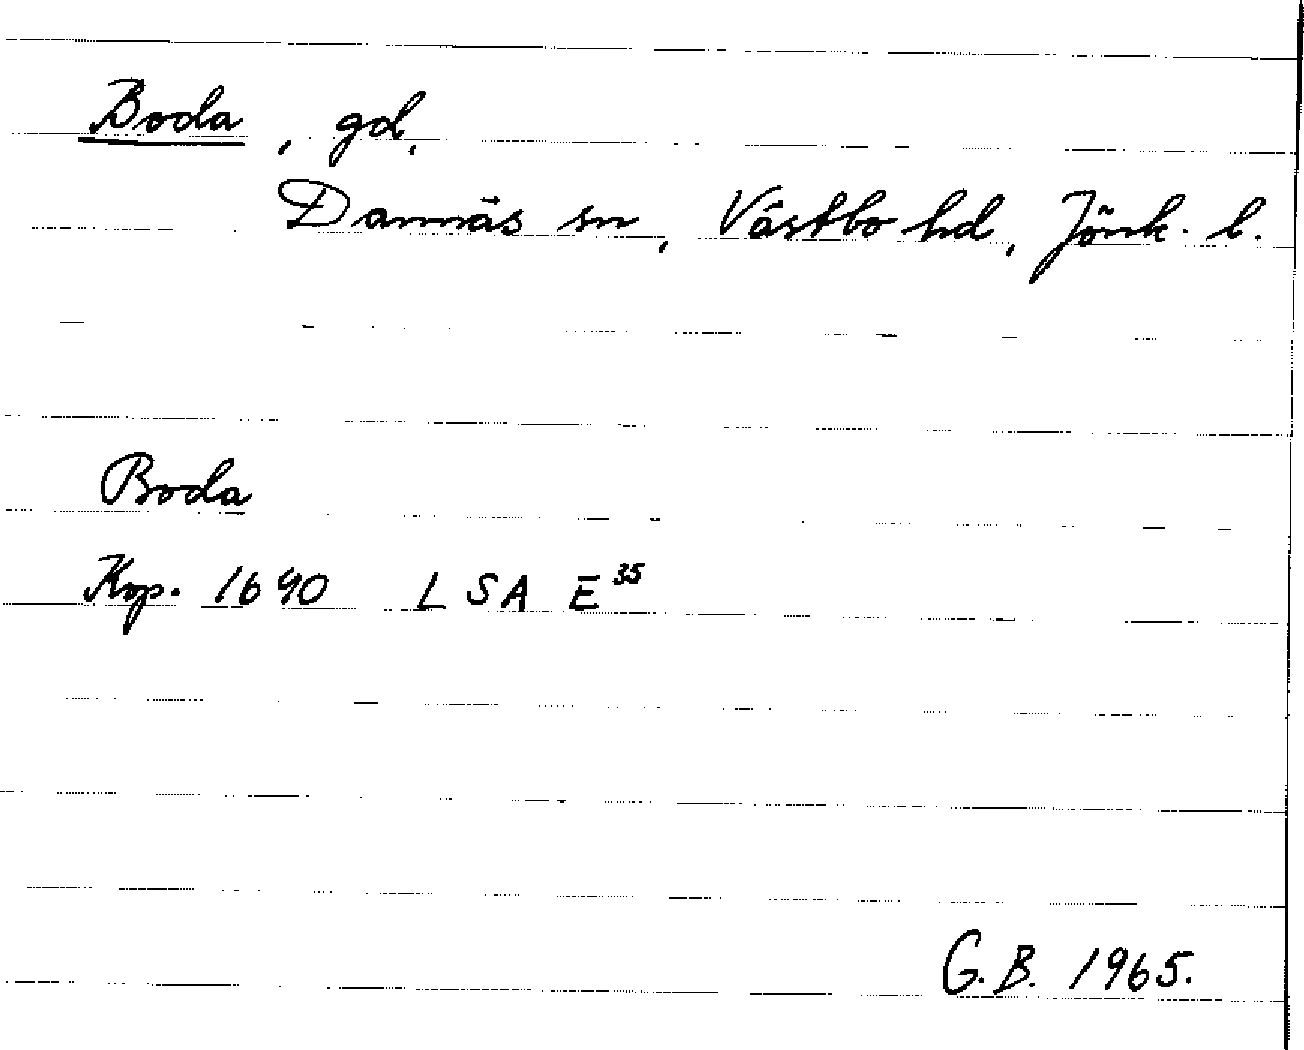 Boda, gd,
Dannäs sn, Västbo hd, Jönk. l.
Boda
Kop. 1690 LSA E35
G.B. 1965.